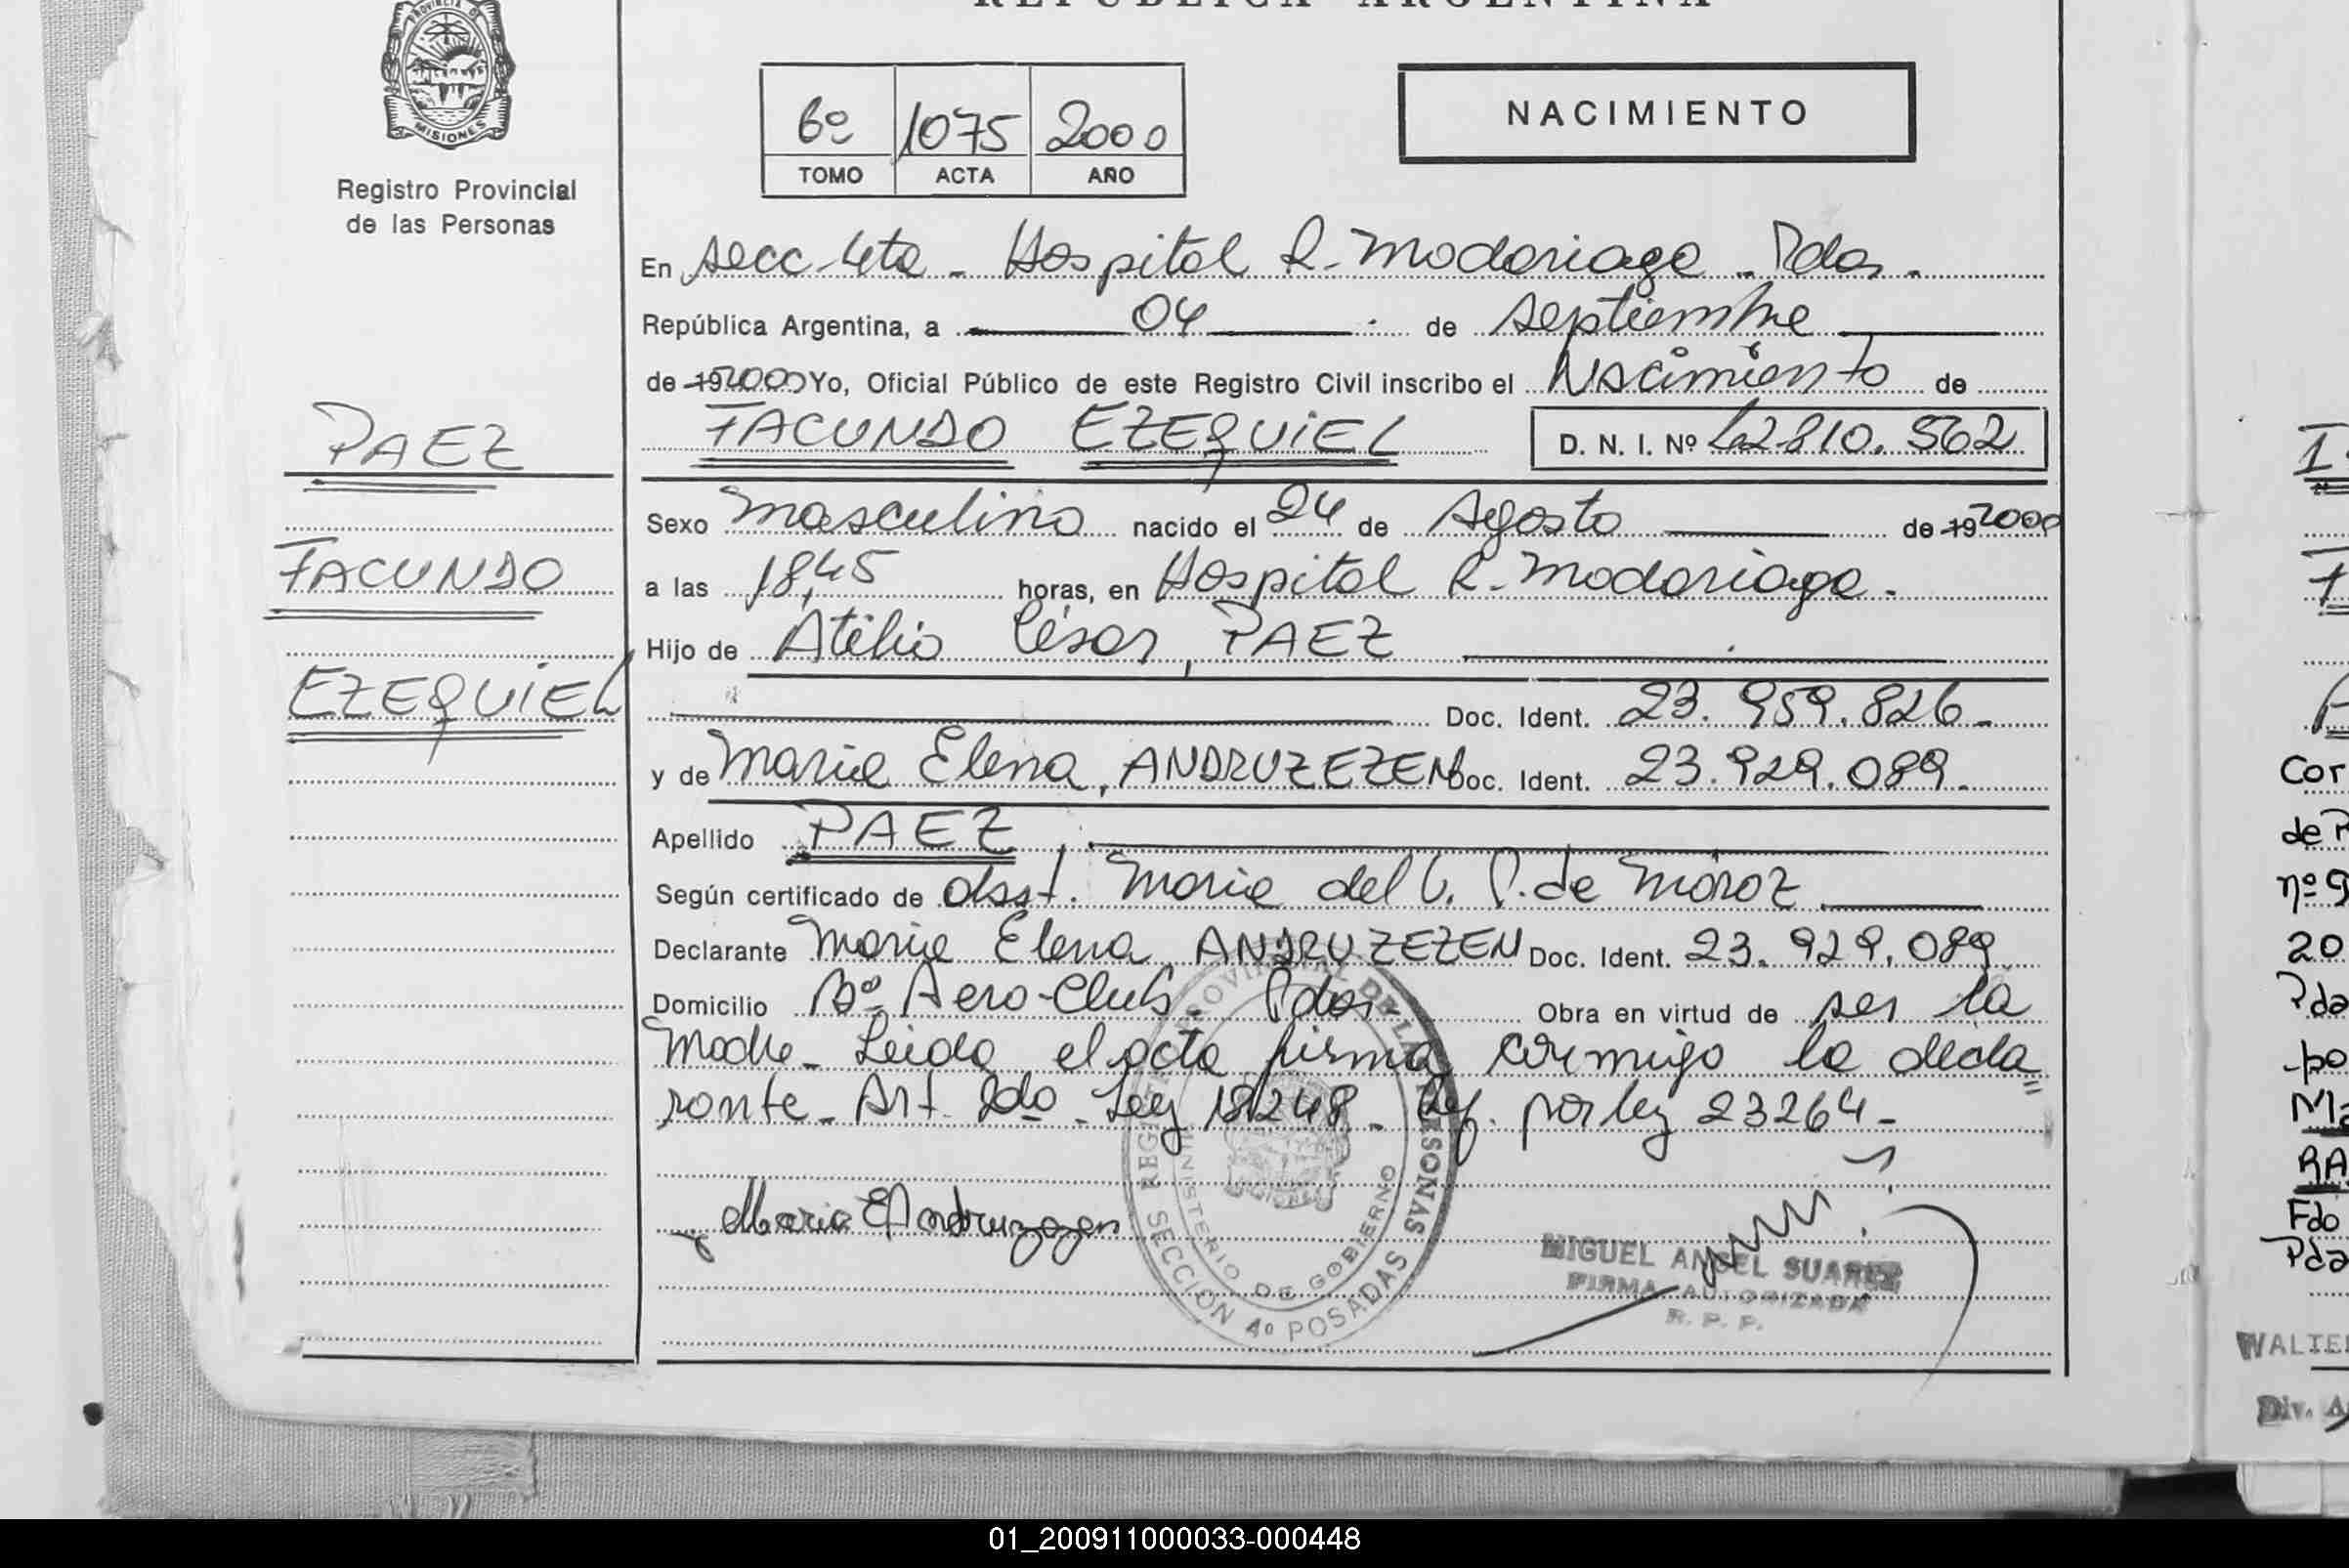 REPUBLICA ARGENTINA
PROVINCIA DE
MISIONES
Registro Provincial
de las Personas
6º 1075 2000
TOMO ACTA AÑO
NACIMIENTO
En secc 4ta - Hospital R. Madariaga - Pdas.
República Argentina, a 04 de septiembre
de 19 2000 Yo, Oficial Público de este Registro Civil inscribo el Nacimiento de
FACUNDO EZEQUIEL D. N. I. Nº 42.810.562
PAEZ
FACUNDO
EZEQUIEL
Sexo masculino nacido el 24 de Agosto de 19 2000
a las 18,45 horas, en Hospital R. Madariaga.
Hijo de Atilio César, PAEZ
Doc. Ident. 23.959.826-
y de Maria Elena, ANDRUZEZEN Doc. Ident. 23.929.089-
Apellido PAEZ
Según certificado de obst. Maria del C. P. de Moroz
Declarante Maria Elena ANDRUZEZEN Doc. Ident. 23.929.089
Domicilio Bº Aero-Club Pdas Obra en virtud de ser la
Madre- Leida el acta firma conmigo la decla=
rante- Art 2do - Ley 18248. por ley 23264-
Maria E Andruzezen
REGISTRO PROVINCIAL DE LAS PERSONAS
MINISTERIO DE GOBIERNO
SECCION 4º POSADAS
MISIONES
MIGUEL ANGEL SUAREZ
FIRMA AUTORIZADA
R. P. P.
Cor
de P
nº 9
20
Pda
po
Ma
RA
Fdo
Pda
WALTE
Div. A
01_200911000033-000448